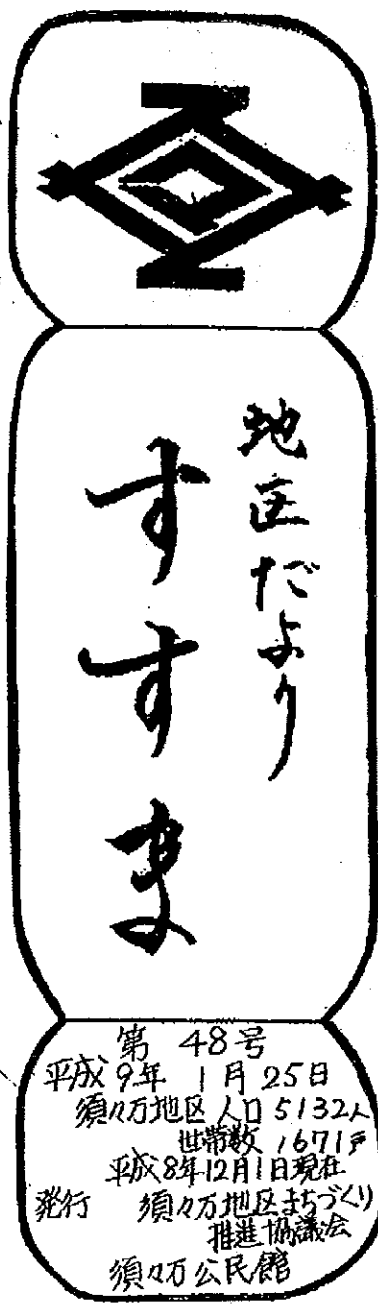 地区だより
すすま
第 48号
平成9年 1月25日
須々万地区人口5132人
世帯数 1671戸
平成8年12月1日現在
発行 須々万地区まちづくり
推進協議会
須々万公民館